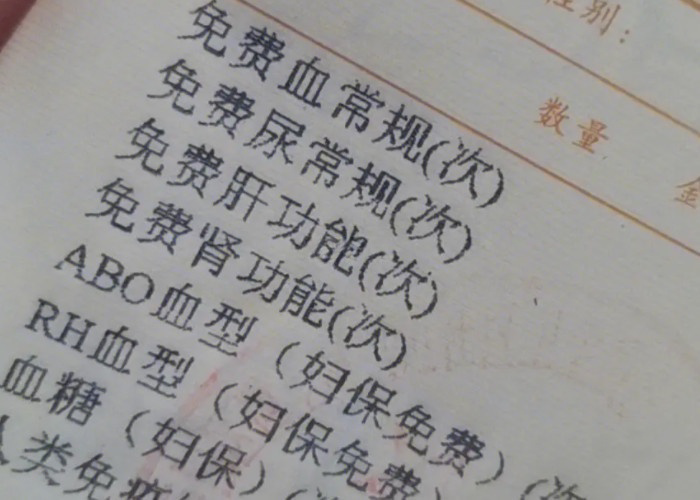 性别：
数量 金
免费血常规(次)
免费尿常规(次)
免费肝功能(次)
免费肾功能(次)
ABO血型（妇保免费）(次
RH血型（妇保免费）
血糖（妇保）(
人类免疫